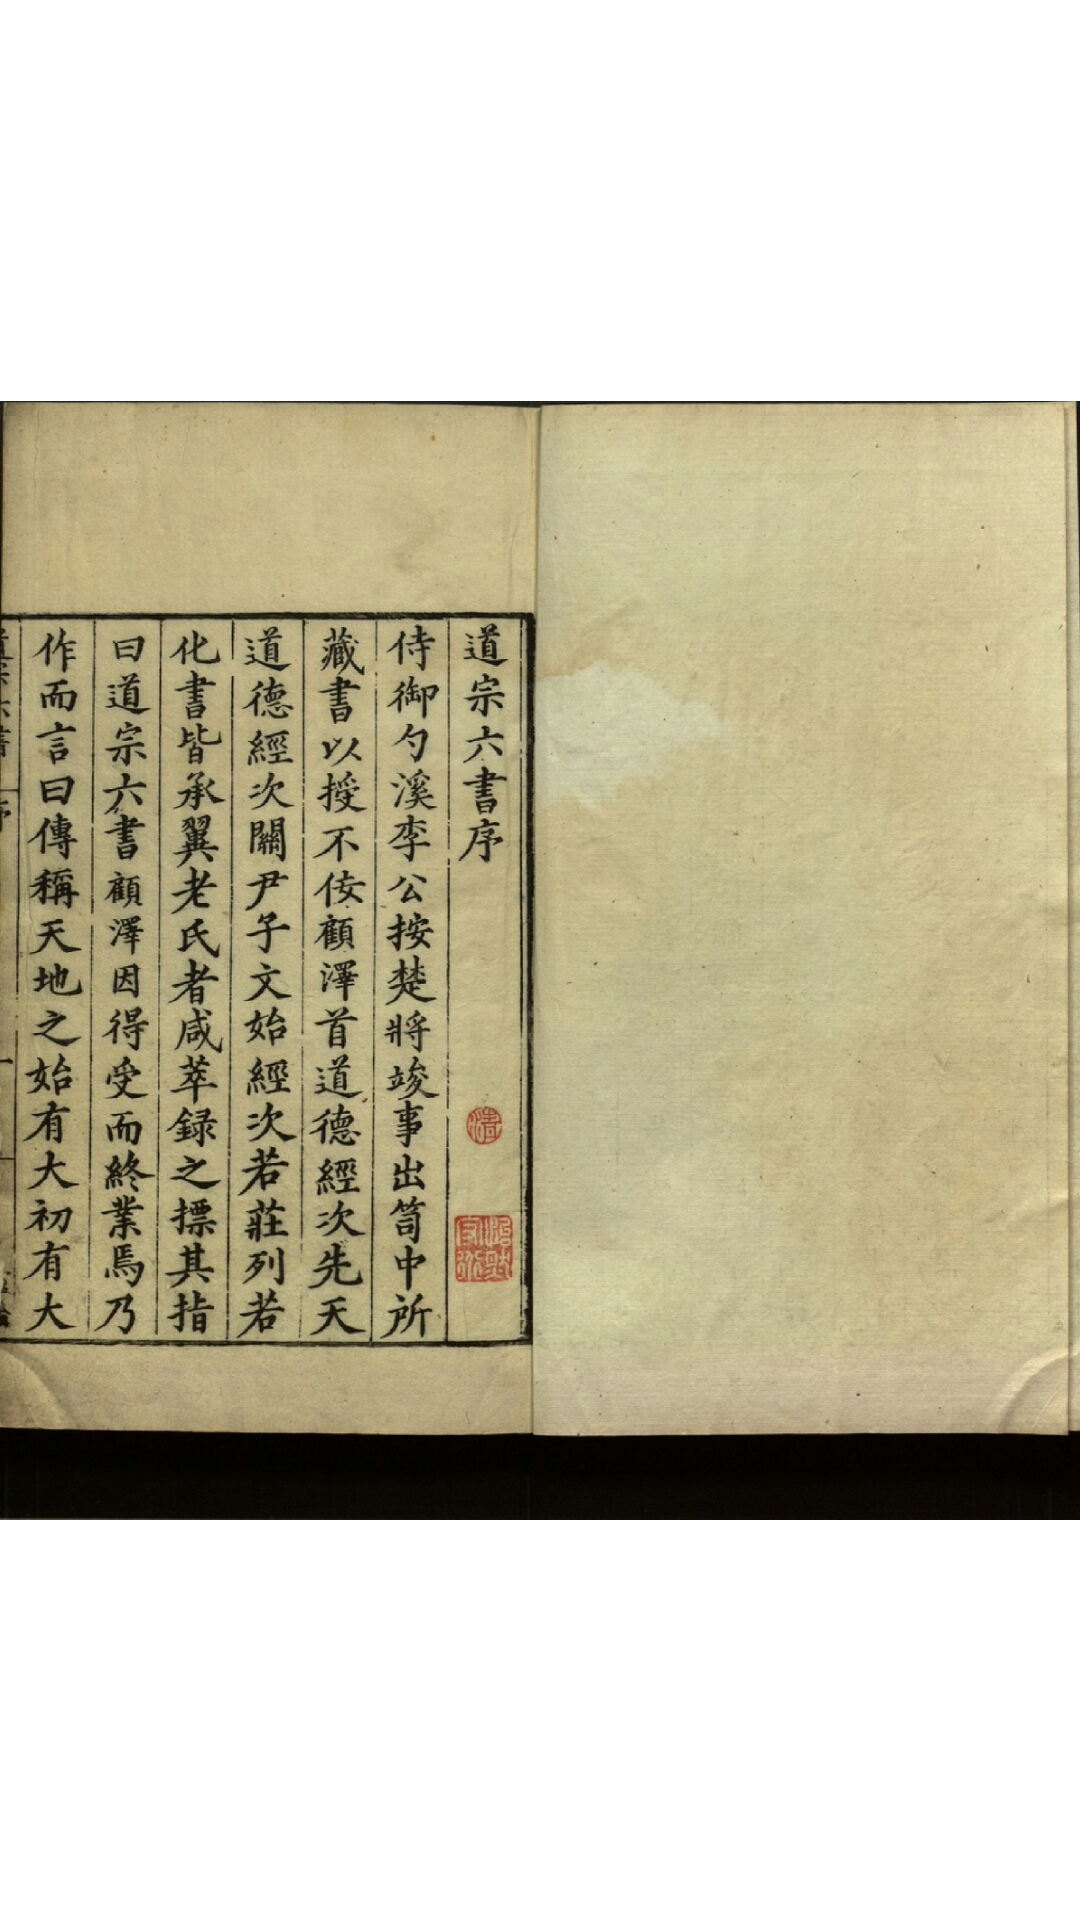 道宗六書序
侍御勺溪李公按楚將竣事出笥中所
藏書以授不佞顧澤首道德經次先天
道德經次關尹子文始經次若莊列若
化書皆承翼老氏者咸萃録之摽其指
曰道宗六書顧澤因得受而終業焉乃
作而言曰傳稱天地之始有大初有大